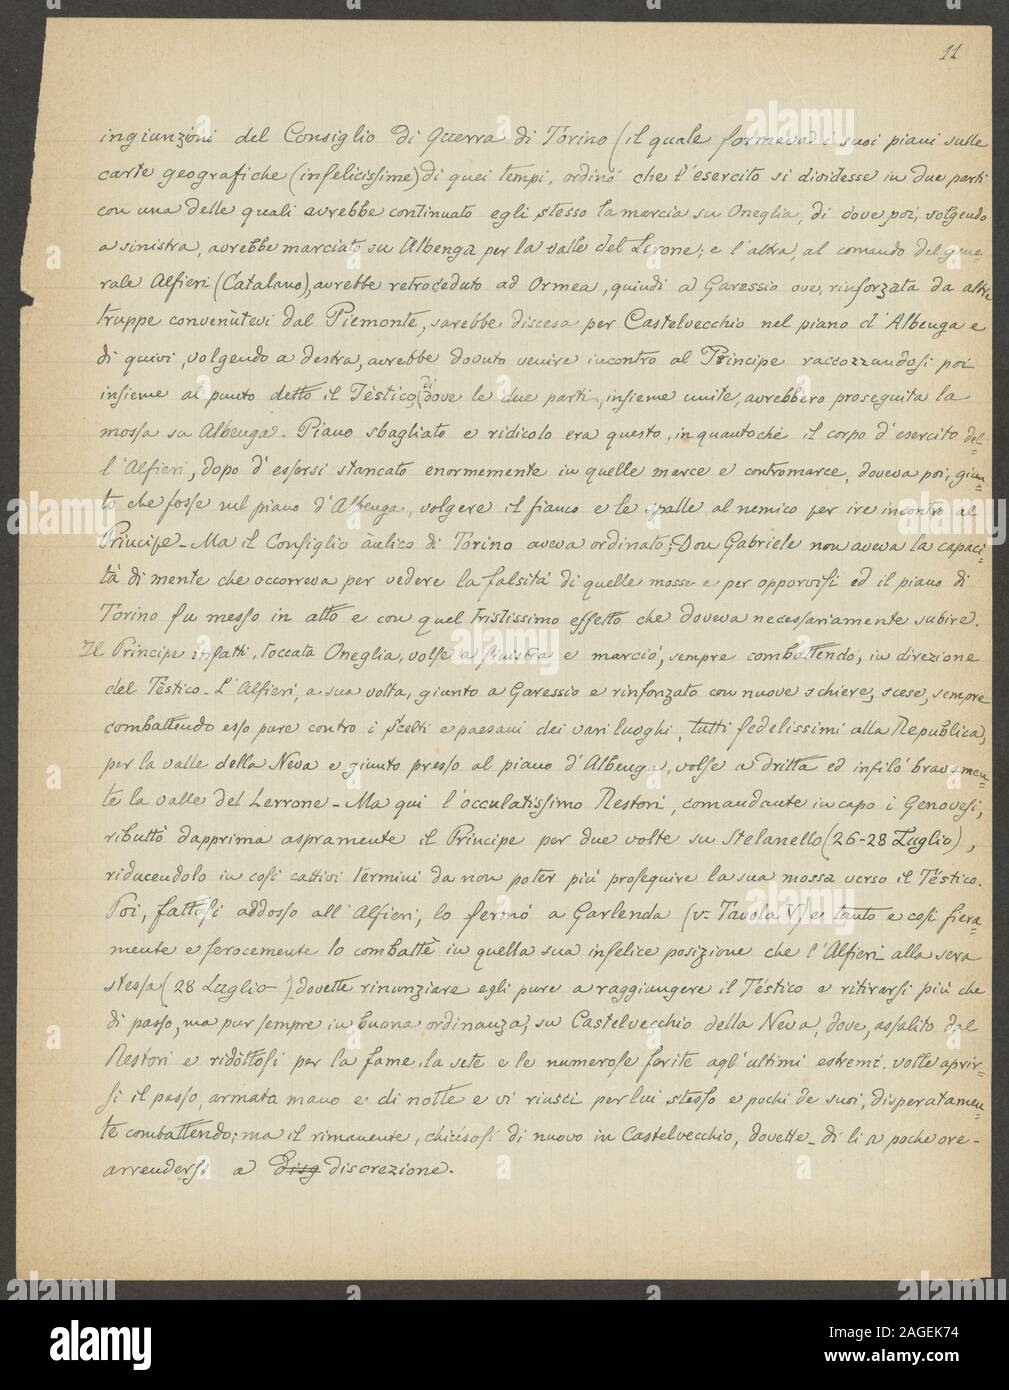 11
ingiunzioni del Consiglio di Guerra di Torino (il quale formava i suoi piani sulle
carte geografiche (infelicissime) di quei tempi, ordinò che l'esercito si dividesse in due parti
con una delle quali avrebbe continuato egli stesso la marcia su Oneglia, di dove poi, volgendo
a sinistra, avrebbe marciato su Albenga per la valle del Lerone; e l'altra, al comando del gene=
rale Alfieri (Catalano), avrebbe retroceduto ad Ormea, quindi a Garessio ove, rinforzata da altre
truppe convenutevi dal Piemonte, sarebbe discesa per Castelvecchio nel piano d'Albenga e
di quivi, volgendo a destra, avrebbe dovuto venire incontro al Principe raccozzandosi poi
insieme al punto detto il Tèstico, di dove le due parti, insieme unite, avrebbero proseguita la
mossa su Albenga. Piano sbagliato e ridicolo era questo, inquantochè il corpo d'esercito del=
l'Alfieri, dopo d'essersi stancato enormemente in quelle marce e contromarce, doveva poi, giun=
to che fosse nel piano d'Albenga, volgere il fianco e le spalle al nemico per ire incontro al
Principe - Ma il Consiglio àulico di Torino aveva ordinato; Don Gabriele non aveva la capaci=
tà di mente che occorreva per vedere la falsità di quelle mosse e per opporvisi ed il piano di
Torino fu messo in atto e con quel tristissimo effetto che doveva necessariamente subire.
Il Principe infatti, toccata Oneglia, volse a sinistra e marciò, sempre combattendo, in direzione
del Tèstico - L'Alfieri, a sua volta, giunto a Garessio e rinforzato con nuove schiere, scese, sempre
combattendo esso pure contro i Scelti e paesani dei vari luoghi, tutti fedelissimi alla Repubblica,
per la valle della Neva e giunto presso al piano d'Albenga, volse a dritta ed infilò bravamen=
te la valle del Lerrone - Ma qui l'occulatissimo Restori, comandante in capo i Genovesi,
ributtò dapprima aspramente il Principe per due volte su Stelanello (26-28 Luglio),
riducendolo in così cattivi termini da non poter più proseguire la sua mossa verso il Tèstico.
Poi, fattosi addosso all'Alfieri, lo fermò a Garlenda (v= Tavola V) e tanto e così fiera=
mente e ferocemente lo combattè in quella sua infelice posizione che l'Alfieri alla sera
stessa (28 Luglio) dovette rinunziare egli pure a raggiungere il Tèstico e ritirarsi più che
di passo, ma pur sempre in buona ordinanza, su Castelvecchio della Neva, dove, assalito dal
Restori e ridottosi per la fame, la sete e le numerose ferite agl'ultimi estremi, volle aprir=
si il passo, armata mano e di notte e vi riuscì per lui stesso e pochi de suoi, disperatamen=
te combattendo; ma il rimanente, chiusosi di nuovo in Castelvecchio, dovette - di lì a poche ore -
arrendersi a disg discrezione.
alamy
alamy
alamy
alamy
alamy
alamy
alamy
alamy
alamy
alamy
Image ID: 2AGEK74
www.alamy.com